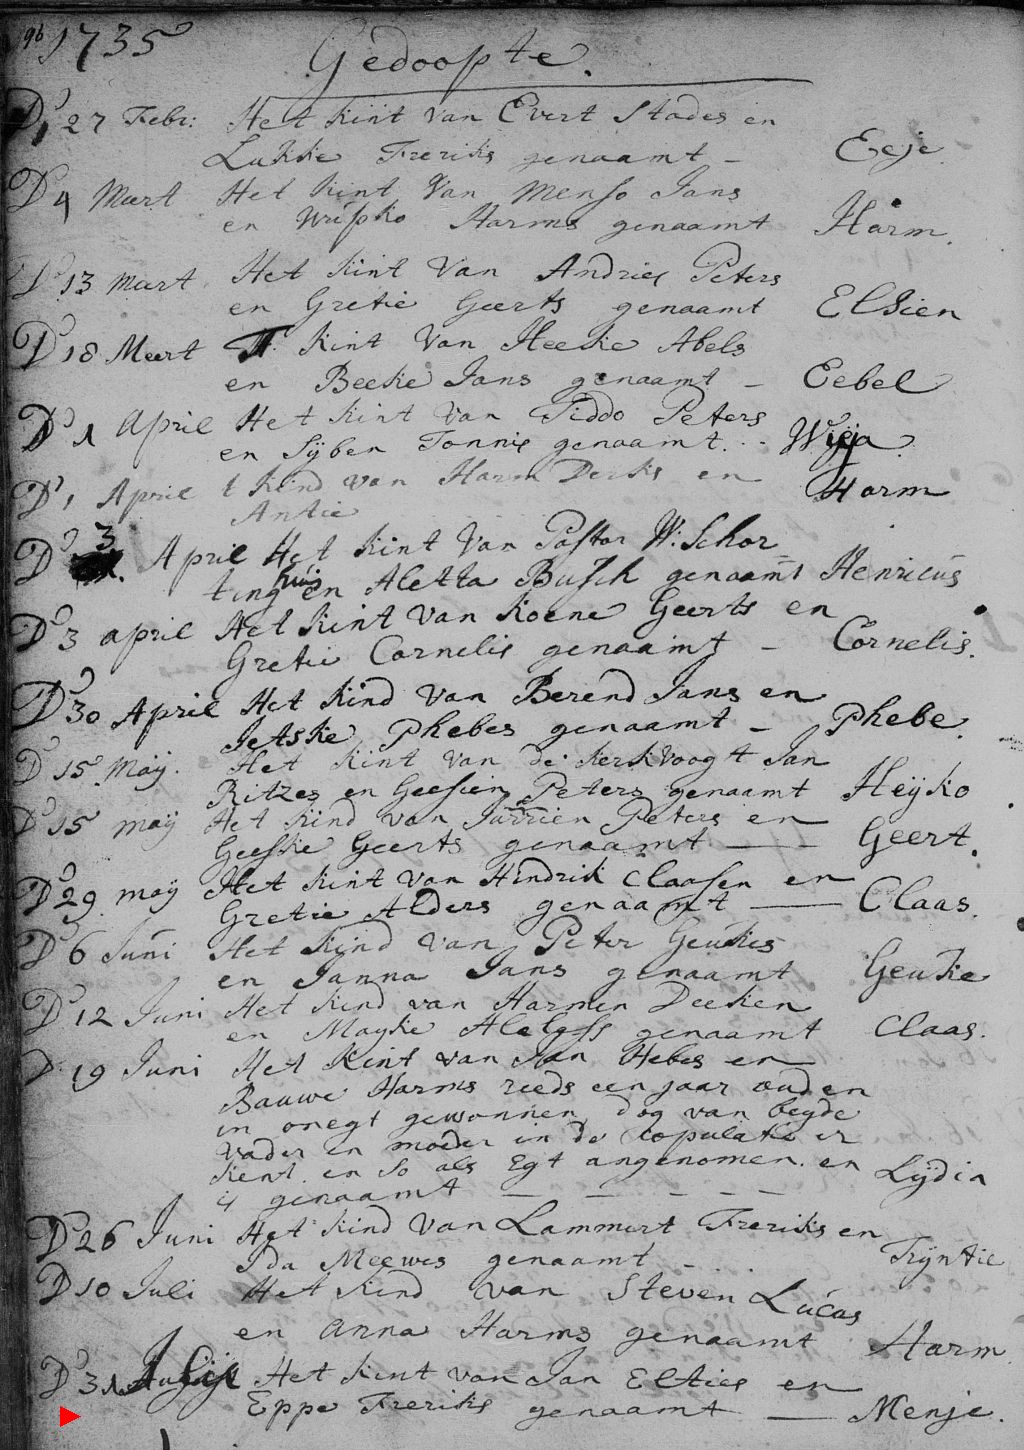 96 1735 Gedoopte.
Ds 27 Febr: Het Kint van Evert Stades en
Lukke Freriks genaamt - Eeje
Ds 4 Mært Het Kint Van Menso Jans
en Harms genaamt Harm.
Ds 13 Mært Het Kint Van Andries Peters
en Gretie Geerts genaamt Elsien
Ds 18 Meert Kint Van Heeke Abels
en Beeke Jans genaamt - Eebel
Ds 1 April Het Kint Van Siddo Peters
en Sÿben Tonnis genaamt. Wija.
Ds 1 April t Kind van Harm Derks en Harm
Antie
Ds 3 April Het Kint Van Pastor W: Schor=
tinghuis en Aletta Busch genaamt Henricus
Ds 3 april Het Kint Van Koene Geerts en
Gretie Cornelis genaamt - Cornelis.
Ds 30 April Het Kind Van Berend Jans en
Jetske Phebes genaamt - Phebe.
Ds 15 Maÿ. Het Kint van de Kerkvoogt Jan
Ritzes en Geesien Peters genaamt Heÿko
Ds 15 maÿ Het Kind van Jurrien Peters en
Geeske Geerts genaamt - - Geert.
Ds 29 maÿ Het Kint van Hindrik Claasen en
Gretie Alders genaamt - Claas.
Ds 6 Juni Het Kind van Peter Geukes
en Janna Jans genaamt Geuke
Ds 12 Juni Het Kind van Harmen Deeken
en Mayke genaamt Claas.
Ds 19 Juni Het Kint van Jan Hebes en
Bauwe Harms reeds een jaar oud en
in onegt gewonnen, dog van beyde
vader en moeder in de Copulatie er
kent en so als Egt angenomen. en Lÿdia
is genaamt - - - - -
Ds 26 Juni Het Kind Van Lammert Freriks en
Ida Meewes genaamt - Trÿntie
Ds 10 Juli Het Kind van Steven Lucas
en Anna Harms genaamt Harm
Ds 31 Het Kint van Jan Elties en
Eppe Freriks genaamt - Menje.